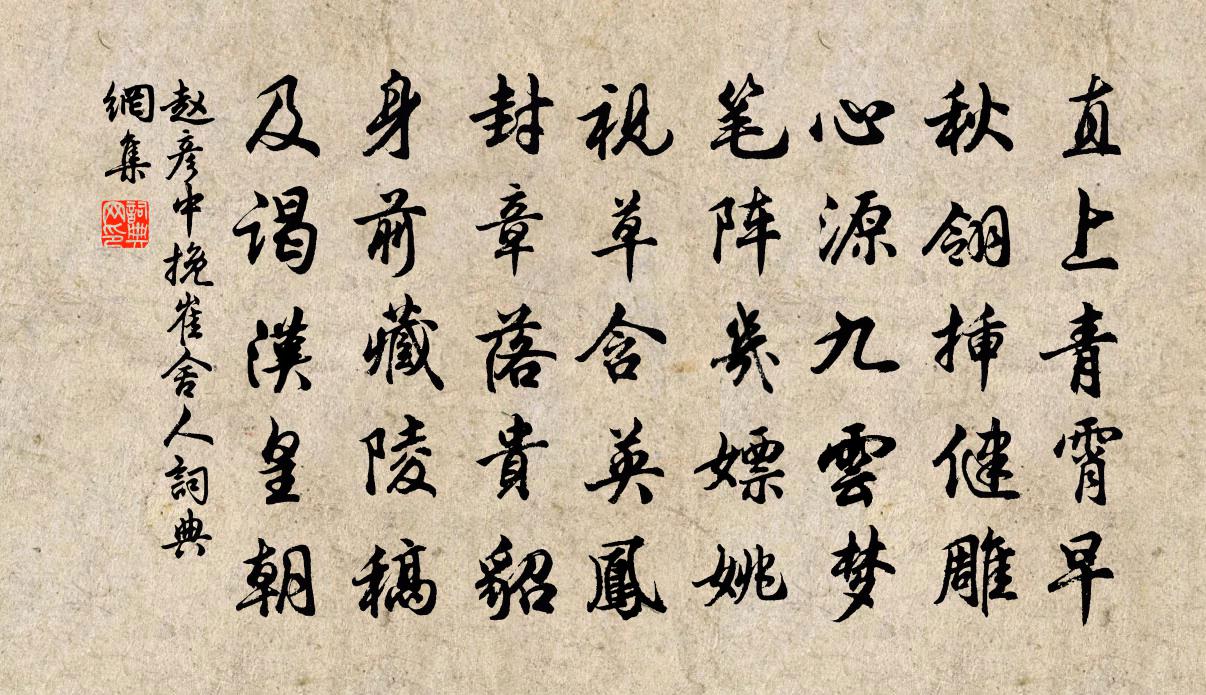 直上青霄早
秋翎挿健雕
心源九雲梦
笔阵幾嫖姚
视草含英鳳
封章落貴貂
身前藏陵稿
及谒漢皇朝
赵彦中挽崔舍人詞典
網集
詞典网印